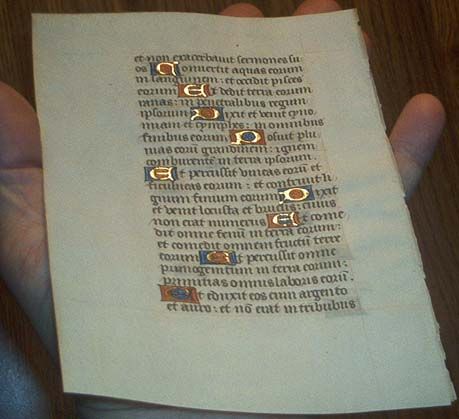 et non exacerbauit sermones su
os Conuertit aquas eorum
in sanguinem: et occidit pisces
eorum Et dedit terra eorum
ranas: in penetralibus regum
ipsorum Dixit et uenit cyno
miam et cyniphes: in omnibus
finibus eorum Posuit plu
uias eorū grandinem: ignem
comburentē in terra ipsorum.
Et percussit uineas eorū et
ficulneas eorum: et contriuit li
gnum finium eorum Dixit
et uenit locusta et brucus: cuius
non erat numerus Et come
dit omne fenū in terra eorum:
et comedit omnem fructū terre
eorum Et percussit omne
primogenitum in terra eorum:
primitias omnis laboris eorū.
Et eduxit eos cum argento
et auro: et nō erat in tribubus